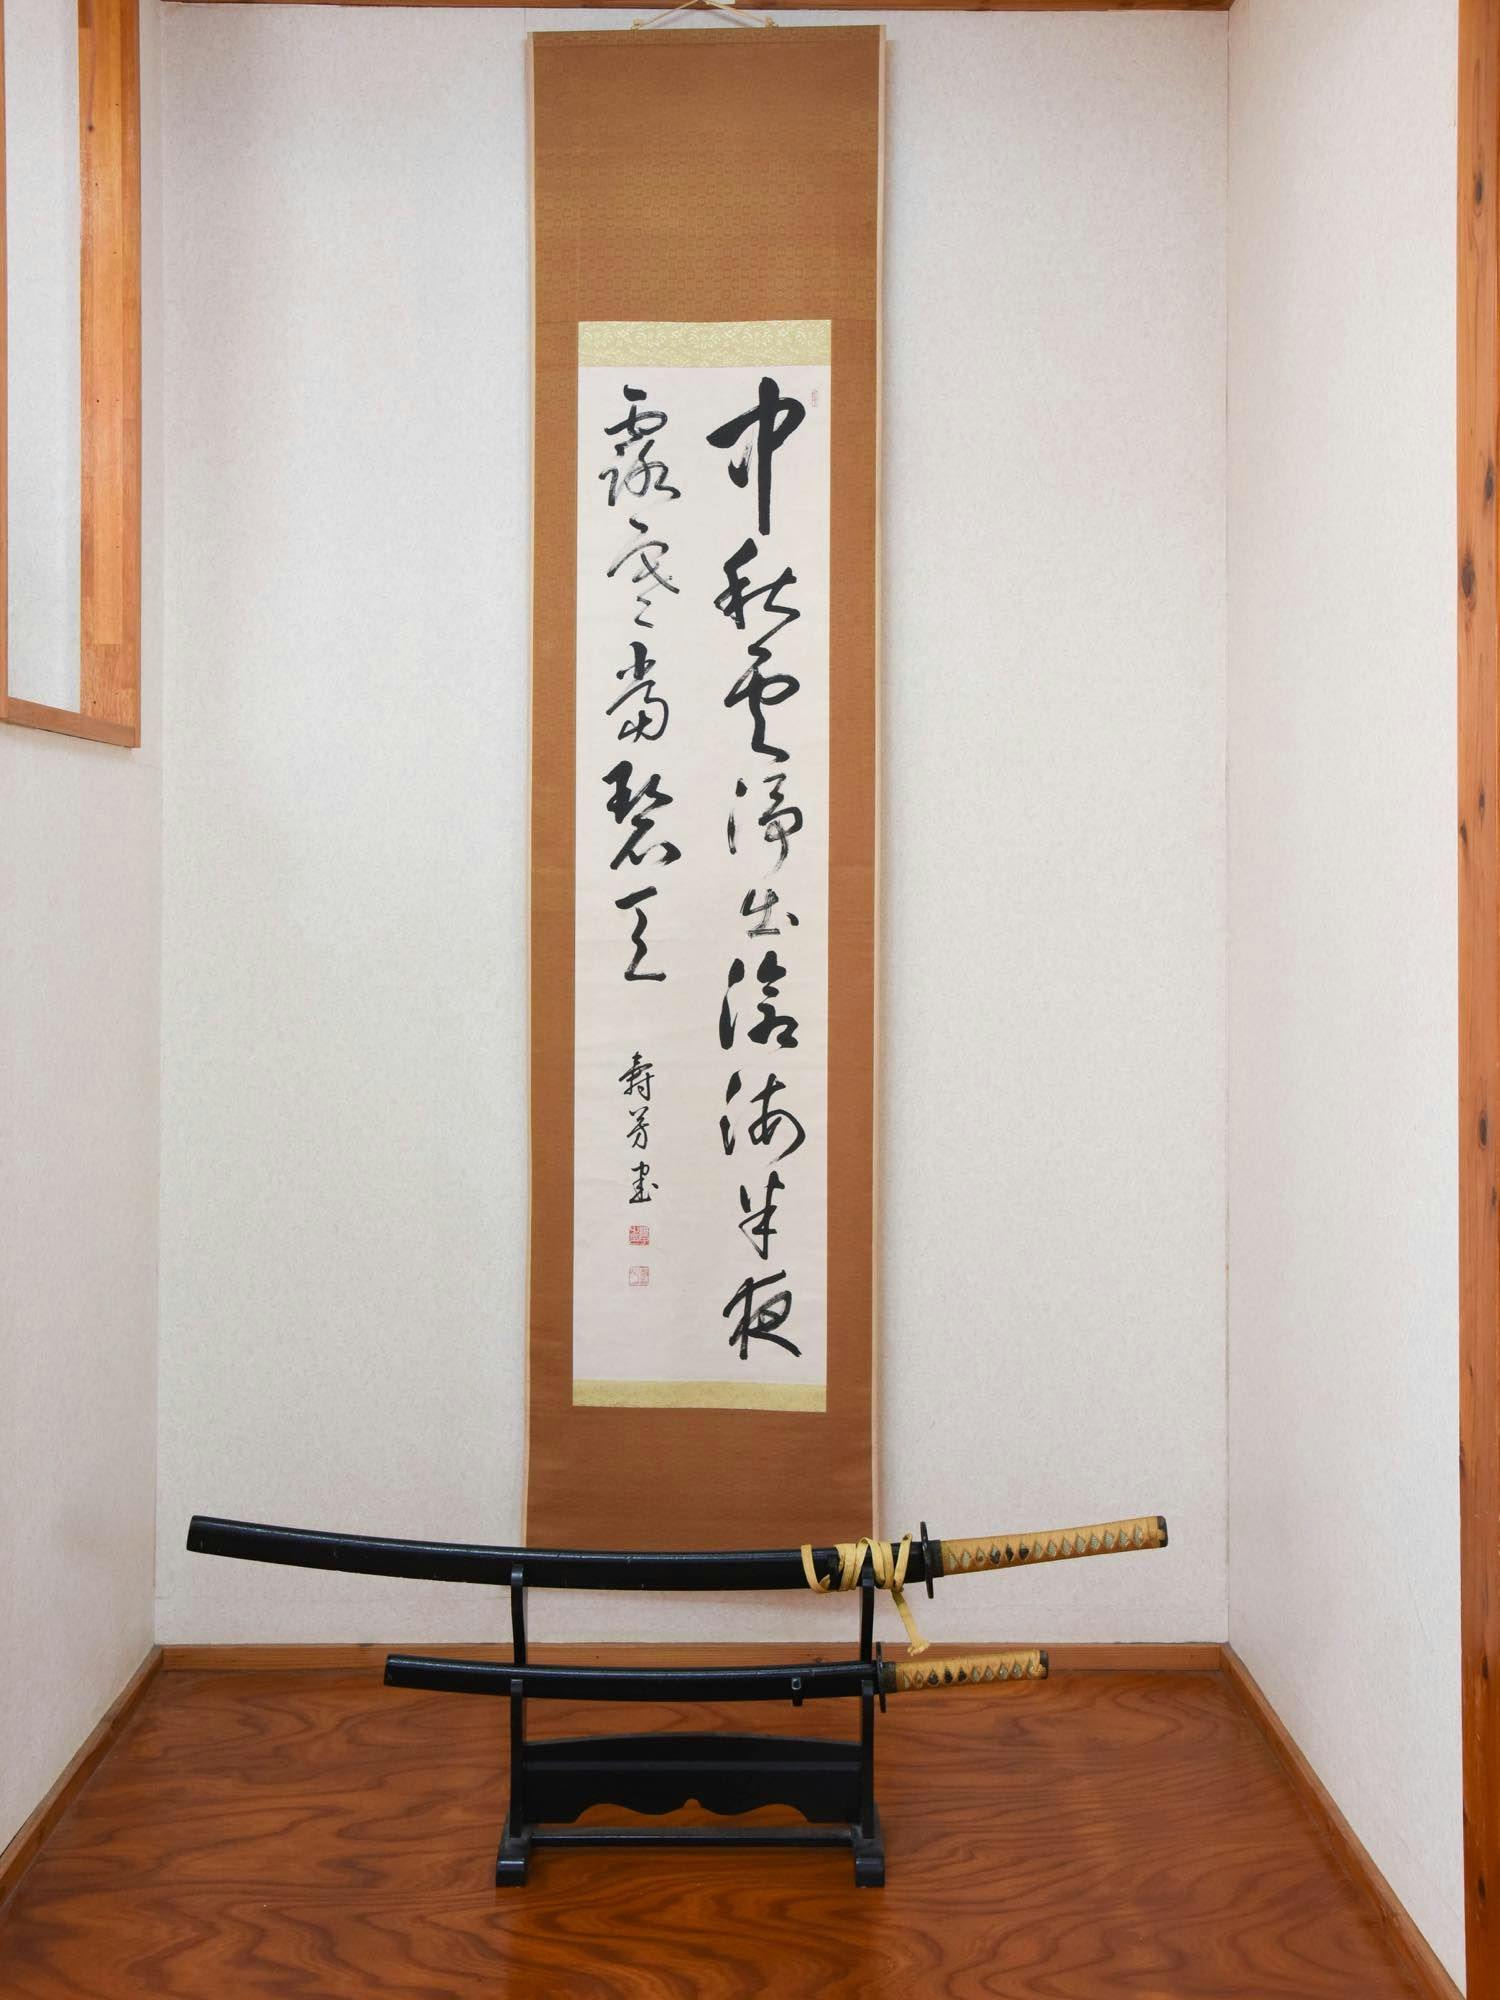 中秋雲淨出滄海半夜
露寒當碧天
壽芳書